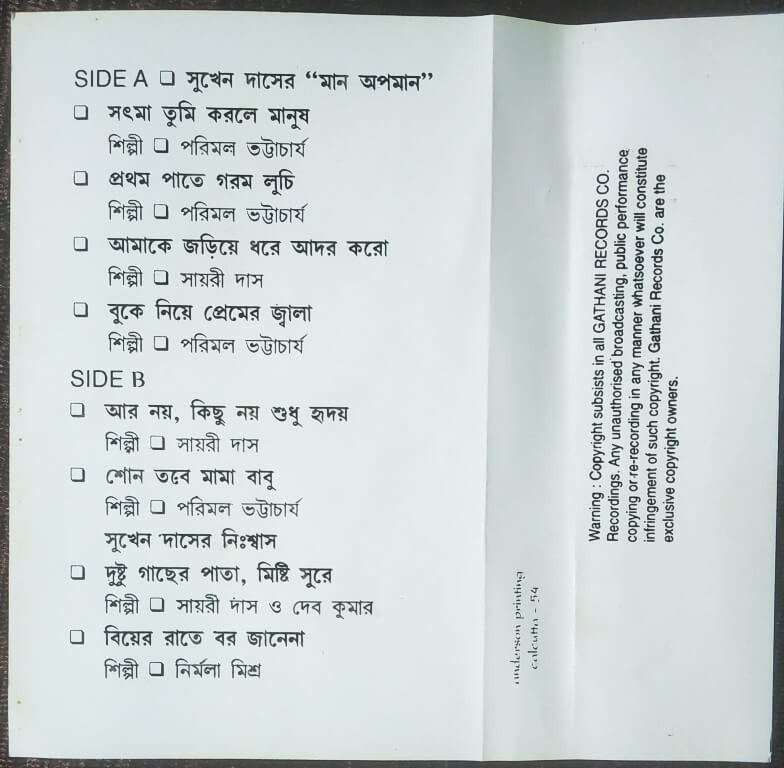 SIDE A ❏ সুখেন দাসের “মান অপমান”
❏ সৎমা তুমি করলে মানুষ
শিল্পী ❏ পরিমল ভট্টাচার্য
❏ প্রথম পাতে গরম লুচি
শিল্পী ❏ পরিমল ভট্টাচার্য
❏ আমাকে জড়িয়ে ধরে আদর করো
শিল্পী ❏ সায়রী দাস
❏ বুকে নিয়ে প্রেমের জ্বালা
শিল্পী ❏ পরিমল ভট্টাচার্য
SIDE B
❏ আর নয়, কিছু নয় শুধু হৃদয়
শিল্পী ❏ সায়রী দাস
❏ শোন তবে মামা বাবু
শিল্পী ❏ পরিমল ভট্টাচার্য
সুখেন দাসের নিঃশ্বাস
❏ দুষ্টু গাছের পাতা, মিষ্টি সুরে
শিল্পী ❏ সায়রী দাস ও দেব কুমার
❏ বিয়ের রাতে বর জানেনা
শিল্পী ❏ নির্মলা মিশ্র
anderson printing
calcutta - 54
Warning : Copyright subsists in all GATHANI RECORDS CO.
Recordings. Any unauthorised broadcasting, public performance
copying or re-recording in any manner whatsoever will constitute
infringement of such copyright. Gathani Records Co. are the
exclusive copyright owners.